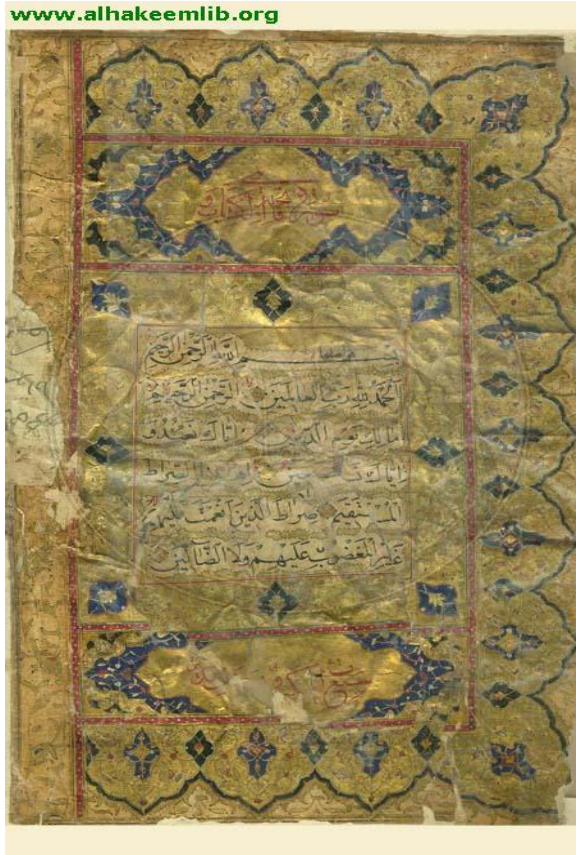 www.alhakeemlib.org
سورة فاتحة الكتاب
بسم الله الرحمن الرحيم
الحمد لله رب العالمين الرحمن الرحيم
مالك يوم الدين اياك نعبد و
اياك نستعين اهدنا الصراط
المستقيم صراط الذين انعمت عليهم
غير المغضوب عليهم ولا الضالين